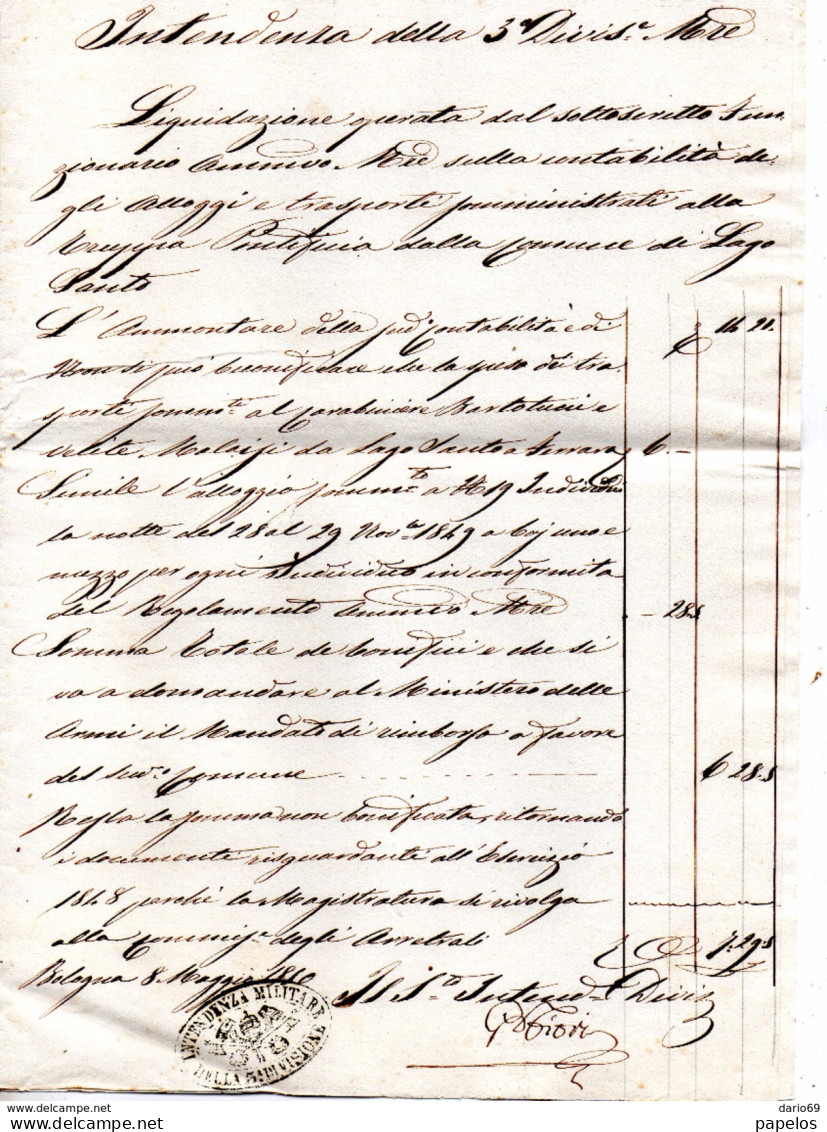 Intendenza della 3a Divis.e Mre
Liquidazione operata dal sottoscritto Fun,
zionario Ammivo. Mre sulla contabilità de,
gli Alloggi e trasporti somministrati alla
Truppa Pontificia dalla Comune di Lago
Santo
L'Ammontare della sud. Contabilità è di £ 14 21.
Non si può bonificare che la spesa di tra,
sporto somm.to al Carabiniere Bartolucci e
velite Malaisi da Lago Santo a Ferrara 6. —
Simile l'alloggio somm.to a N 19 Individui
la notte del 28 al 29 Nov.e 1849 a baj uno e
mezzo per ogni Individuo in conformità
del Regolamento Ammivo Mre . — 28.5
Somma Totale de bonifici e che si
va a domandare al Ministero delle
Armi il Mandato di rimborso a favore
del sud.o Comune 6 28.5
Resta la somma non bonificata, ritornando
i documenti risguardanti all'Esercizio
1848 perchè la Magistratura si rivolga
alla Commis.e degli Arretrati 7.29.5
Bologna 8 Maggio 1850 Il S.to Intend.e Divis
INTENDENZA MILITARE
DELLA 3A DIVISIONE
dario69
papelos